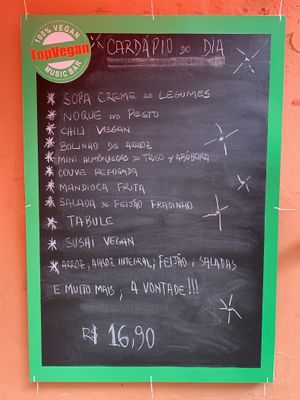 100% VEGAN
TopVegan
MUSIC BAR
CARDÁPIO DO DIA
SOPA CREME DE LEGUMES
NHOQUE AO PESTO
CHILI VEGAN
BOLINHO DE ARROZ
MINI ALMÔNDEGAS DE TRIGO Y ABÓBORA
COUVE REFOGADA
MANDIOCA FRITA
SALADA DE FEIJÃO FRADINHO
TABULE
SUSHI VEGAN
ARROZ, ARROZ INTEGRAL, FEIJÃO, SALADAS
E MUITO MAIS, A VONTADE!!!
R$ 16,90